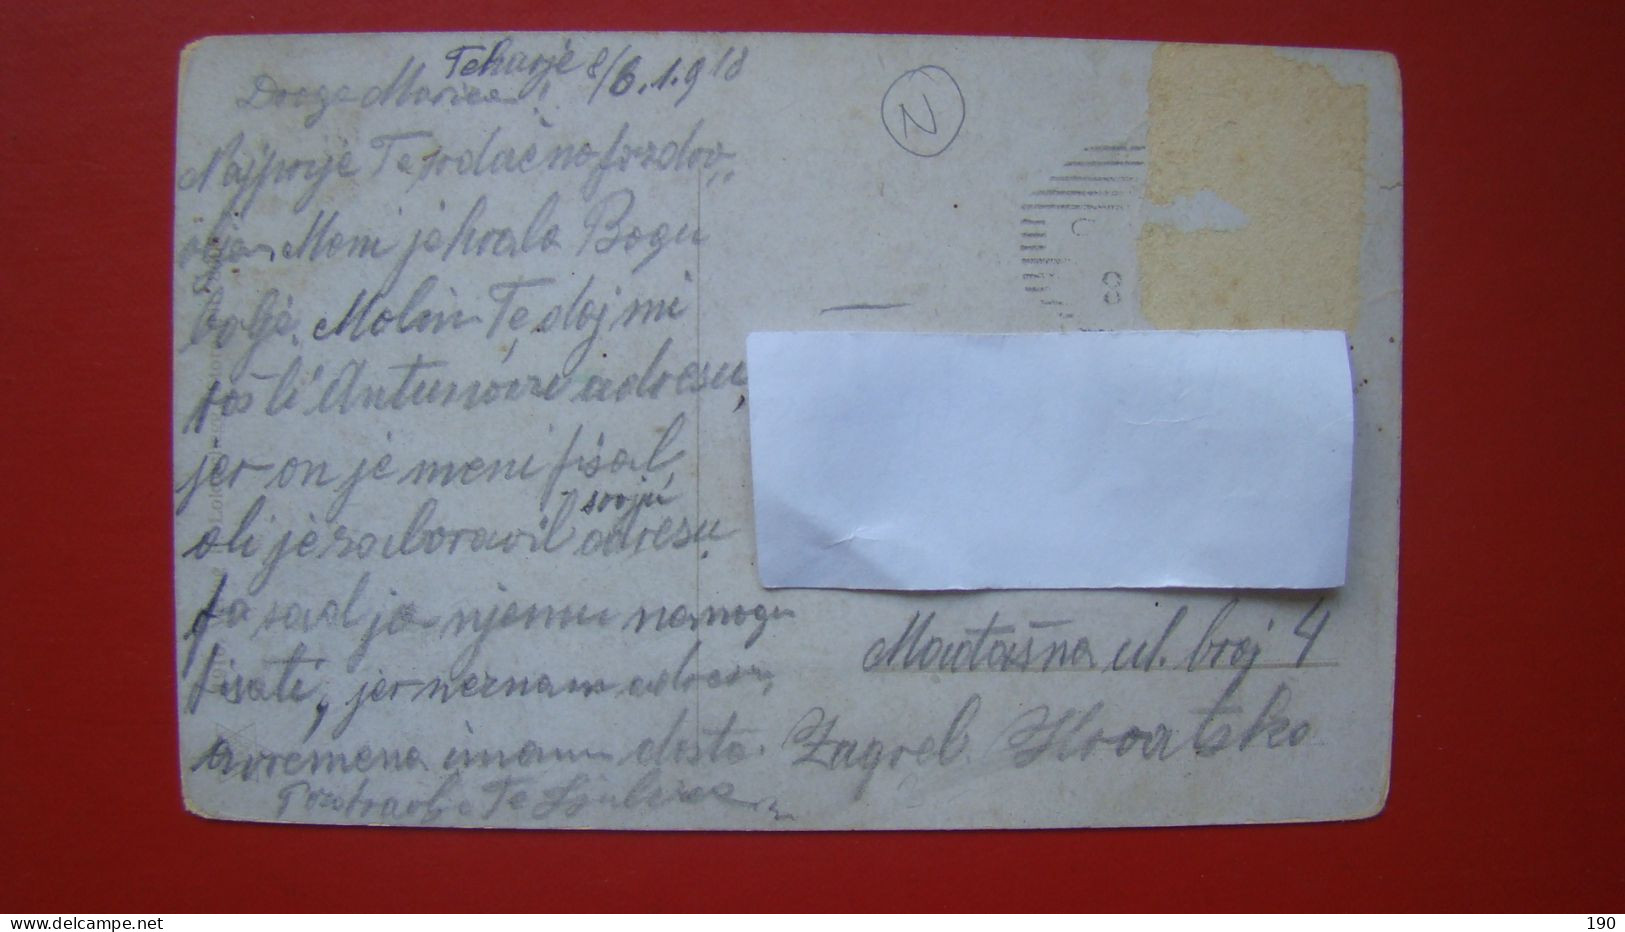 Teharje 8/6.1.918
Draga Marica!
Najprije Te srdačno pozdra„
vljam. Meni je hvala Bogu
bolje. Molim Te, daj mi
pošli Antunovu adresu,
jer on je meni pisal
ali je zaboravil svoju adresu
pa sad ja njemu nemogu
pisati, jer neznam adresu,
a vremena imam dosta.
Pozdravlja Te Ljubica
N
Mautašna ul. broj 4
Zagreb. Hrvatska
190